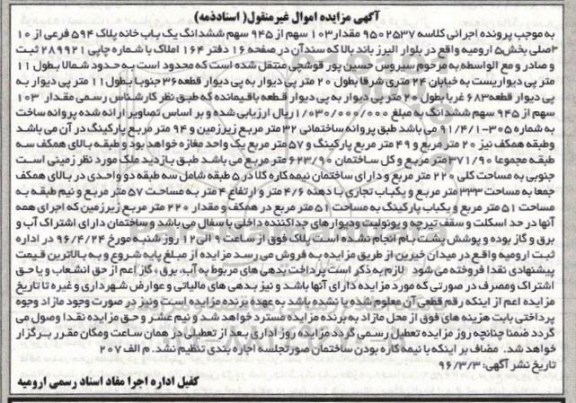 آگهی مزایده اموال غیرمنقول( اسنادذمه)
به موجب پرونده اجرائی کلاسه 9502537 مقدار 103 سهم از 945 سهم ششدانگ یک باب خانه پلاک 594 فرعی از 10
اصلی بخش 5 ارومیه واقع در بلوار البرز باند بالا که سندآن در صفحه 16 دفتر 164 املاک با شماره چاپی 289921 ثبت
و صادر و مع الواسطه به مرحوم سیروس حسین پور قوشچی منتقل شده است که محدود است به حدود شمالا بطول 11
متر پی دیواریست به خیابان 24 متری شرقا بطول 20 متر پی به پی دیوار قطعه 36 جنوبا بطول 11 متر پی دیوار به
پی دیوار قطعه 683 غربا بطول 20 متر پی دیوار به پی دیوار قطعه باقیمانده که طبق نظر کارشناس رسمی مقدار 103
سهم از 945 سهم ششدانگ به مبلغ 1/030/000/000 ریال ارزیابی شده و بر اساس تصاویر ارائه شده پروانه ساخت
به شماره 305-91/4/1 می باشد طبق پروانه ساختمانی 32 متر مربع زیرزمین و 94 متر مربع پارکینگ در آن می باشد
وطبقه همکف نیز 20 متر مربع و 49 متر مربع پارکینگ و 57 متر مربع یک واحد مغازه خواهد بود و طبقه بالای همکف سه
طبقه مجموعا 371/90 متر مربع و کل ساختمان 623/90 متر مربع می باشد طبق بازدید ملک مورد نظر زمینی است
جنوبی به مساحت کلی 220 متر مربع و دارای ساختمان نیمه کاره کلا در 5 طبقه شامل سه طبقه دو واحدی در بالای همکف
جمعا به مساحت 333 متر مربع و یکباب تجاری با دهنه 4/6 متر و ارتفاع 4 متر به مساحت 57 متر مربع و نیم طبقه به
مساحت 51 متر مربع و یکباب پارکینگ به مساحت 51 متر مربع در همکف و مقدار 220 متر مربع زیرزمین که اجرای همه
آنها در حد اسکلت و سقف تیرچه و یونولیت ودیوارهای جداکننده داخلی با سفال می باشد وساختمان دارای اشتراک آب و
برق و گاز بوده و پوشش پشت بام انجام نشده است پلاک فوق از ساعت 9 الی 12 روز شنبه مورخ 96/4/24 در اداره
ثبت ارومیه واقع در میدان خیرین از طریق مزایده به فروش می رسد مزایده از مبلغ پایه شروع و به بالاترین قیمت
پیشنهادی نقدا فروخته می شود لازم به ذکر است پرداخت بدهی های مربوط به آب، برق ، گاز اعم از حق انشعاب و یا حق
اشتراک ومصرف در صورتی که مورد مزایده دارای آنها باشد و نیز بدهی های مالیاتی و عوارض شهرداری و غیره تا تاریخ
مزایده اعم از اینکه رقم قطعی آن معلوم شده یا نشده باشد به عهده برنده مزایده است ونیز در صورت وجود مازاد وجوه
پرداختی بابت هزینه های فوق از محل مازاد به برنده مزایده مسترد خواهد شد و نیم عشر و حق مزایده نقدا وصول می
گردد ضمنا چنانچه روز مزایده تعطیل رسمی گردد مزایده روز اداری بعد از تعطیل در همان ساعت ومکان مقرر برگزار
خواهد شد. مضاف بر اینکه با نیمه کاره بودن ساختمان صورتجلسه اجاره بندی تنظیم نشد. م الف 207
تاریخ نشر آگهی: 96/3/3
کفیل اداره اجرا مفاد اسناد رسمی ارومیه